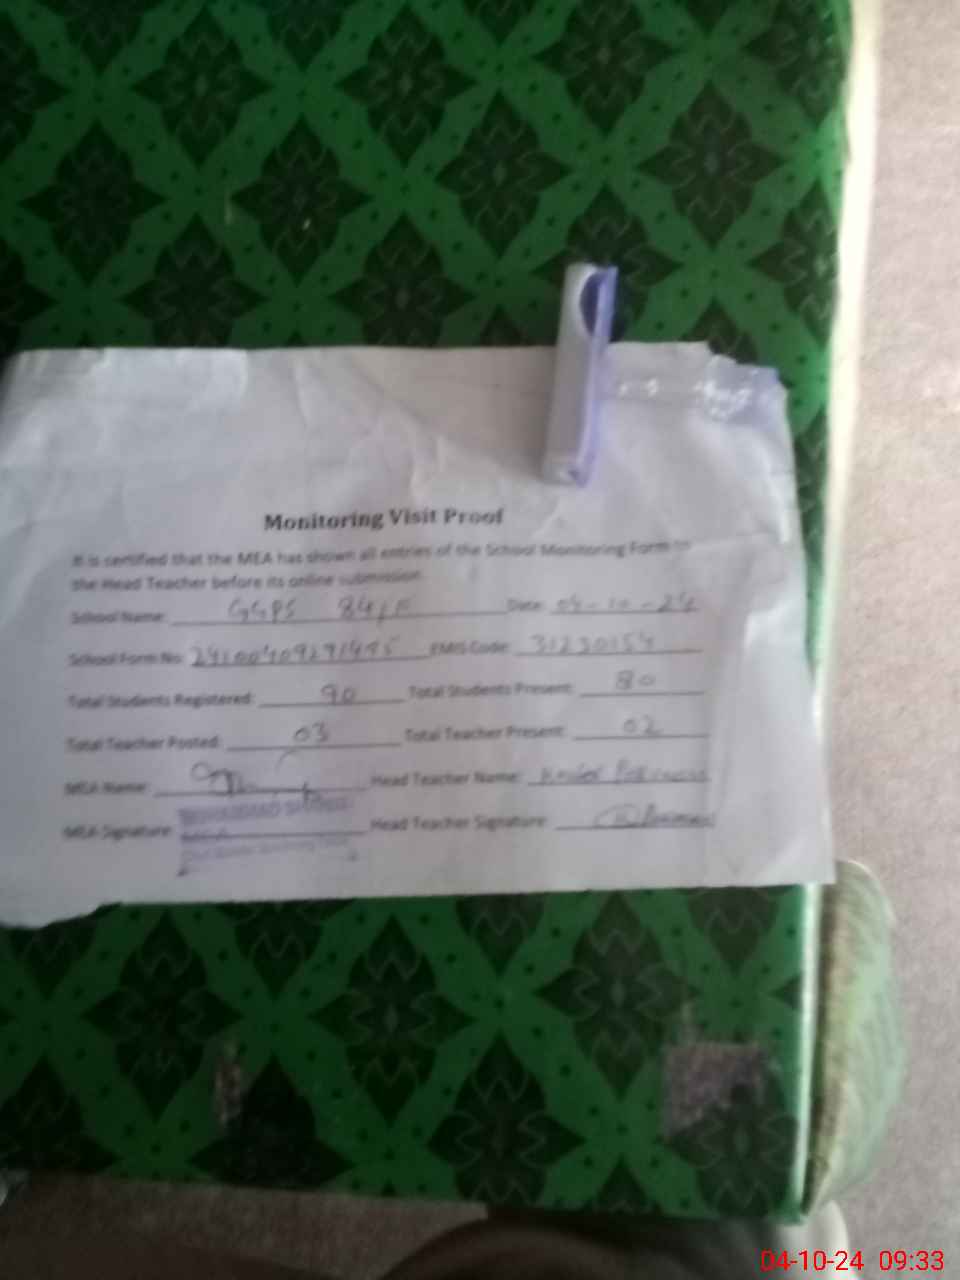 Monitoring Visit Proof
It is certified that the MEA has shown all entries of the School Monitoring Form to
the Head Teacher before its online submission.
School Name: GGPS 84/F Date: 04-10-24
School Form No: EMIS Code: 31230154
Total Students Registered: 90 Total Students Present: 80
Total Teacher Posted: 03 Total Teacher Present: 02
MEA Name: Head Teacher Name:
MEA Signature: Head Teacher Signature:
MEA
04-10-24 09:33